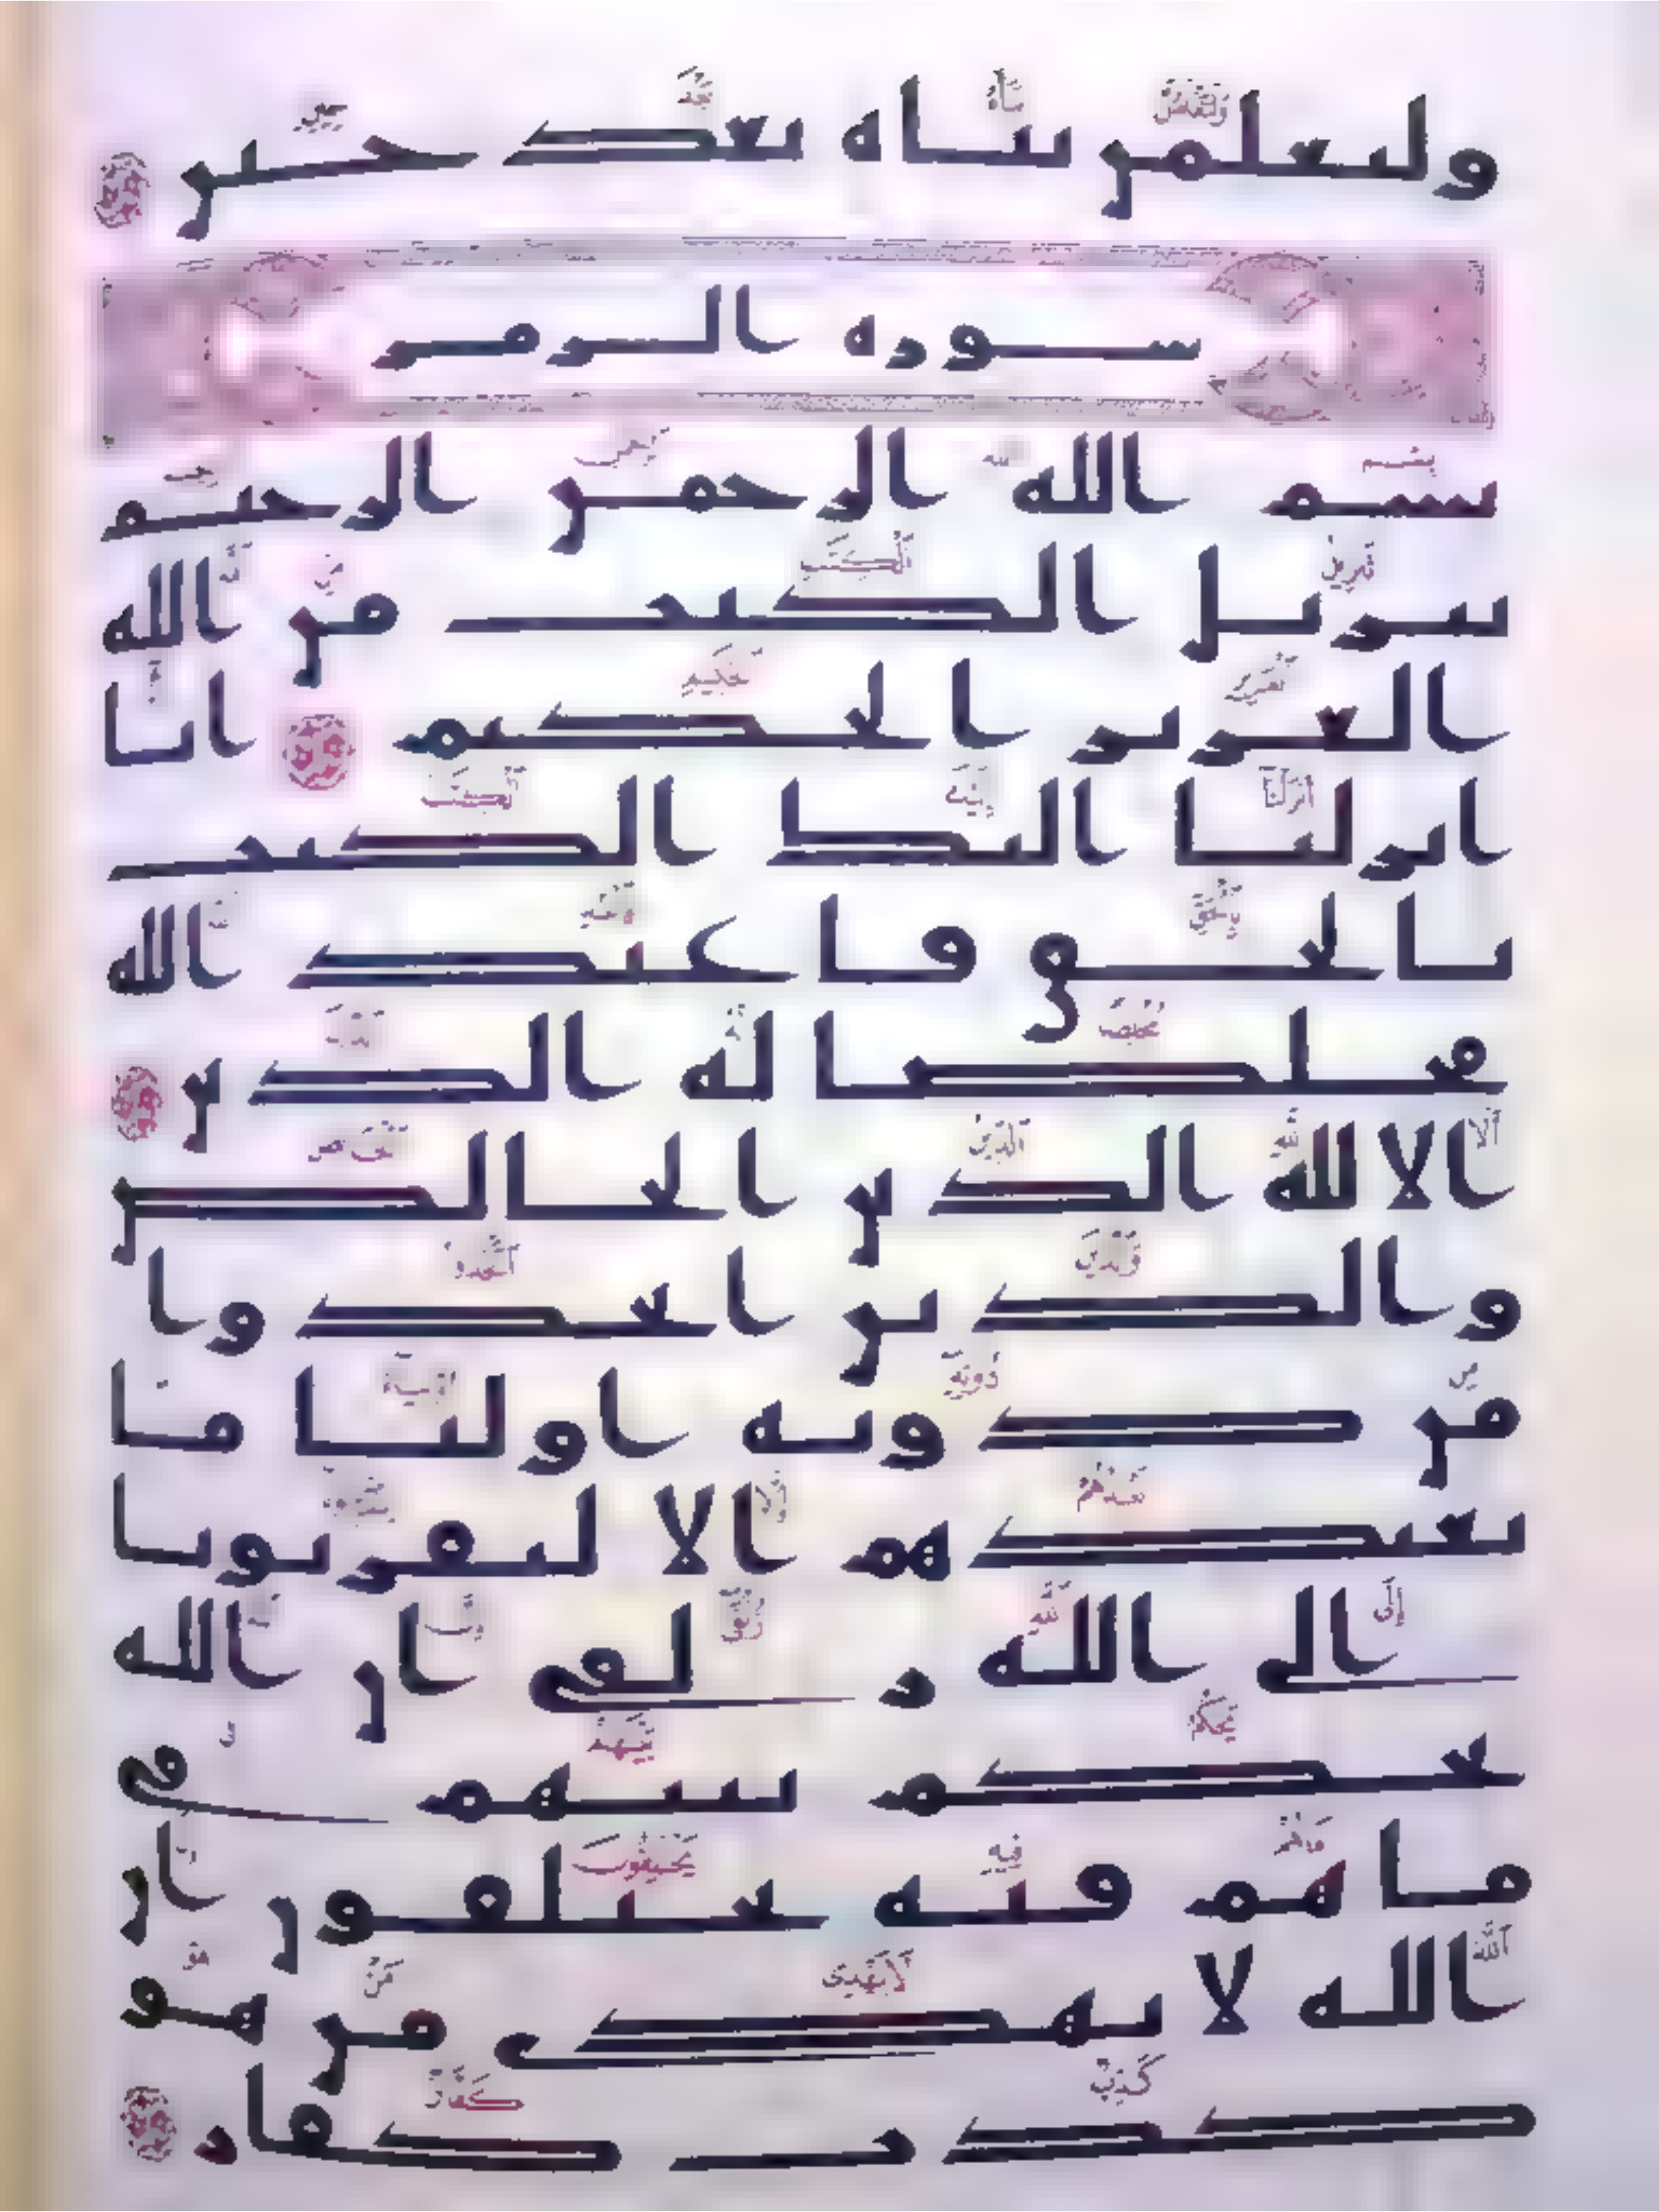 ولتعلمن نباه بعد حين
سورة الزمر
بسم الله الرحمن الرحيم
تنزيل الكتب من الله
العزيز الحكيم انا
انزلنا اليك الكتب
بالحق فاعبد الله
مخلصا له الدين
الا لله الدين الخالص
والذين اتخذوا
من دونه اوليا ما
نعبدهم الا ليقربونا
الى الله زلفى ان الله
يحكم بينهم في
ما هم فيه يختلفون ان
الله لا يهدي من هو
كذب كفار